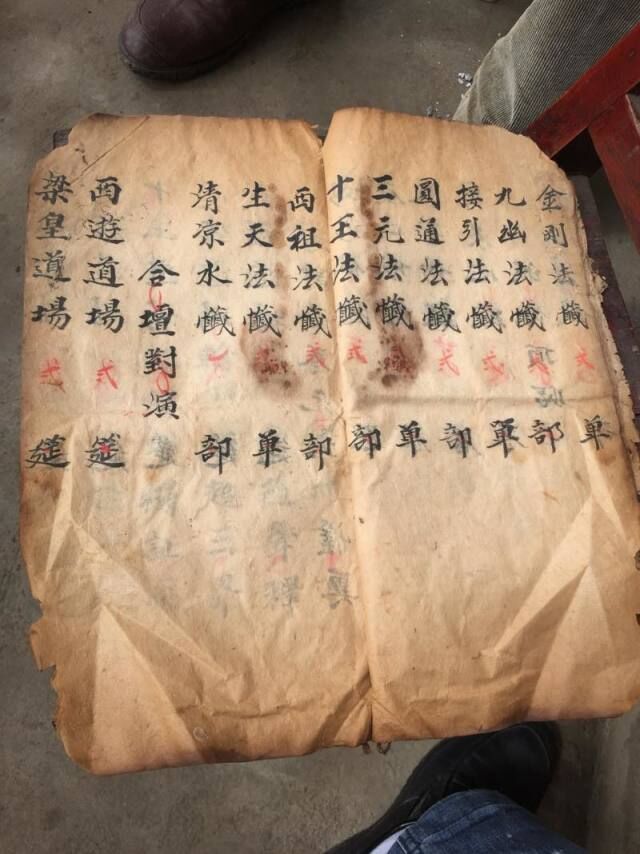 金剛法懺 单
九幽法懺 部
接引法懺 單
圓通法懺 部
三元法懺 单
十王法懺 部
西祖法懺 部
生天法懺 单
清凉水懺 部
合壇對演
西遊道場 筵
梁皇道場 筵